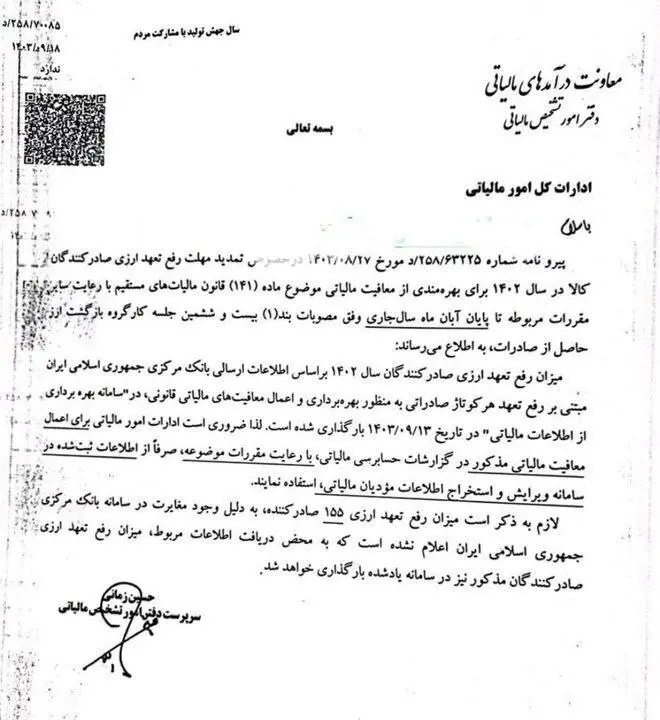 سال جهش تولید با مشارکت مردم
۲۵۸/۷۰۰۸۵/د
۱۴۰۳/۰۹/۱۸
ندارد
معاونت درآمدهای مالیاتی
دفتر امور تشخیص مالیاتی
بسمه تعالی
ادارات کل امور مالیاتی
باسلام
پیرو نامه شماره ۲۵۸/۶۳۲۲۵/د مورخ ۱۴۰۳/۰۸/۲۷ درخصوص تمدید مهلت رفع تعهد ارزی صادرکنندگان
کالا در سال ۱۴۰۲ برای بهره‌مندی از معافیت مالیاتی موضوع ماده (۱۴۱) قانون مالیات‌های مستقیم با رعایت سایر
مقررات مربوطه تا پایان آبان ماه سال‌جاری وفق مصوبات بند(۱) بیست و ششمین جلسه کارگروه بازگشت ارز
حاصل از صادرات، به اطلاع می‌رساند:
میزان رفع تعهد ارزی صادرکنندگان سال ۱۴۰۲ براساس اطلاعات ارسالی بانک مرکزی جمهوری اسلامی ایران
مبتنی بر رفع تعهد هر کوتاژ صادراتی به منظور بهره‌برداری و اعمال معافیت‌های مالیاتی قانونی، در"سامانه بهره برداری
از اطلاعات مالیاتی" در تاریخ ۱۴۰۳/۰۹/۱۳ بارگذاری شده است. لذا ضروری است ادارات امور مالیاتی برای اعمال
معافیت مالیاتی مذکور در گزارشات حسابرسی مالیاتی، با رعایت مقررات موضوعه، صرفاً از اطلاعات ثبت‌شده در
سامانه ویرایش و استخراج اطلاعات مؤدیان مالیاتی، استفاده نمایند.
لازم به ذکر است میزان رفع تعهد ارزی ۱۵۵ صادرکننده، به دلیل وجود مغایرت در سامانه بانک مرکزی
جمهوری اسلامی ایران اعلام نشده است که به محض دریافت اطلاعات مربوط، میزان رفع تعهد ارزی
صادرکنندگان مذکور نیز در سامانه یادشده بارگذاری خواهد شد.
حسین زمانی
سرپرست دفتر امور تشخیص مالیاتی